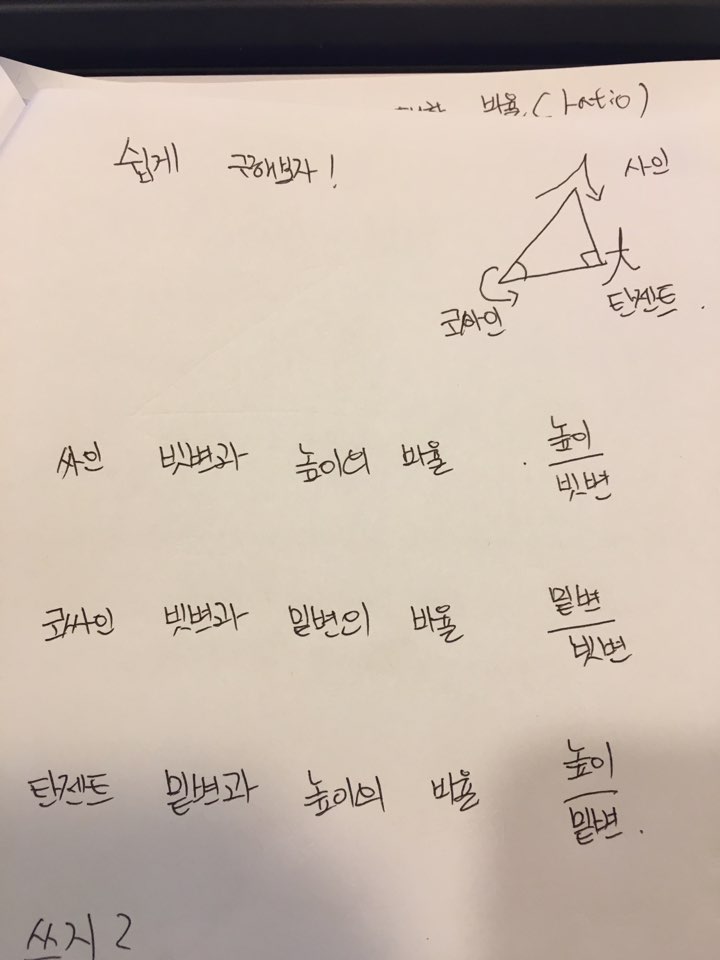 비율 (ratio)
쉽게 구해보자!
사인
코싸인
탄젠트.
싸인 빗변과 높이의 비율 높이
빗변
코싸인 빗변과 밑변의 비율 밑변
빗변
탄젠트 밑변과 높이의 비율 높이
밑변.
쓰지 2